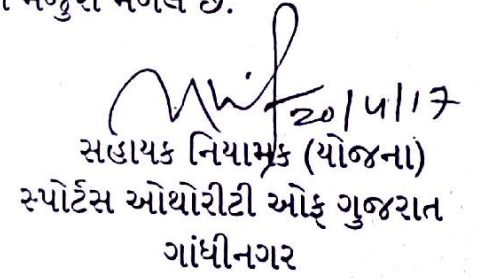 મંજુરી મળેલ છે.
20/4/17
સહાયક નિયામક (યોજના)
સ્પોર્ટસ ઓથોરીટી ઓફ ગુજરાત
ગાંધીનગર